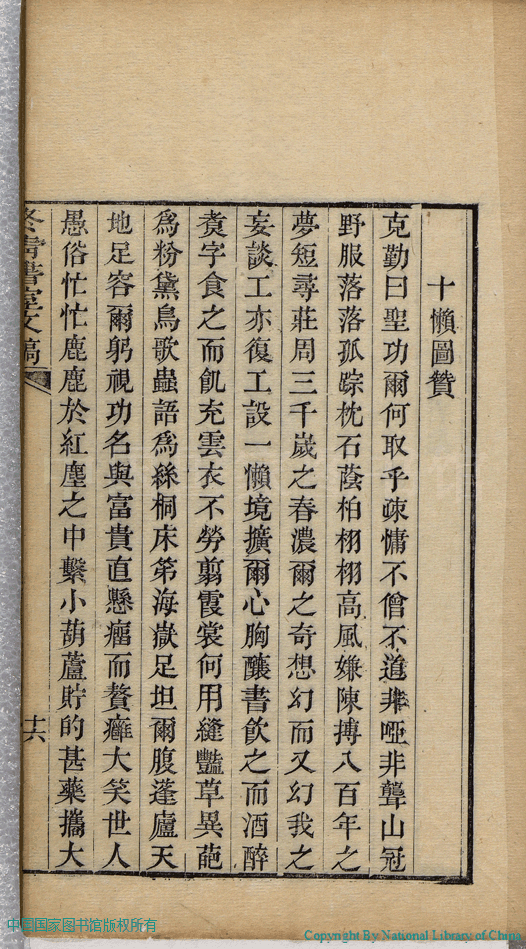 十懶圖贊
克勤曰聖功爾何取乎疎慵不僧不道非啞非聾山冠
野服落落孤踪枕石蔭柏栩栩高風嫌陳摶八百年之
夢短尋莊周三千歲之春濃爾之奇想幻而又幻我之
妄談工亦復工設一懶境擴爾心胸釀書飲之而酒醉
煑字食之而飢充雲衣不勞翦霞裳何用縫豔草異葩
爲粉黛鳥歌蟲語爲絲桐床第海嶽足坦爾腹蓬廬天
地足容爾躬視功名與富貴直懸癅而贅癰大笑世人
愚俗忙忙鹿鹿於紅塵之中繫小葫蘆貯的甚藥攜大
書室文稿
十六
中国国家图书馆版权所有
Copyright By National Library of China